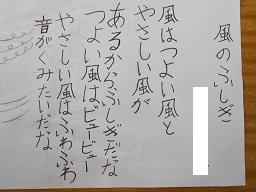 風のふしぎ
風はつよい風と
やさしい風が
あるからふしぎだな
つよい風はビュービュー
やさしい風はふわふわ
音がくみたいだな